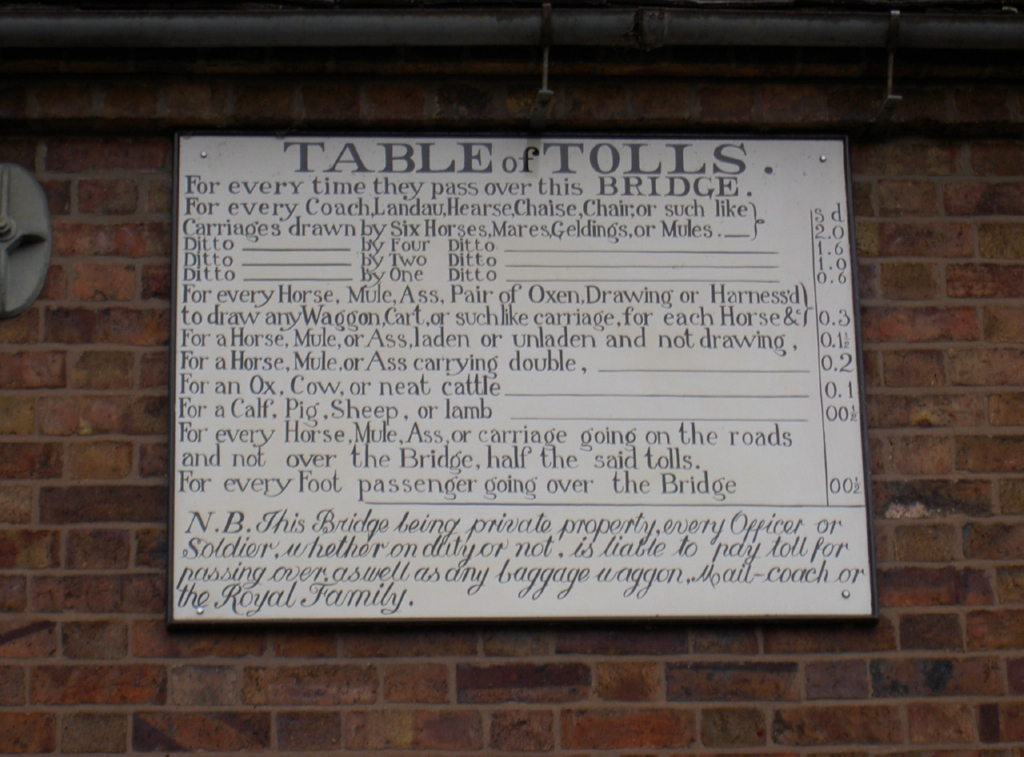 TABLE of TOLLS.
For every time they pass over this BRIDGE.
For every Coach, Landau, Hearse, Chaise, Chair, or such like } s d
Carriages drawn by Six Horses, Mares, Geldings, or Mules. — } 2.0
Ditto ——— by Four Ditto ——— 1.6
Ditto ——— by Two Ditto ——— 1.0
Ditto ——— by One Ditto ——— 0.6
For every Horse, Mule, Ass, Pair of Oxen, Drawing or Harness'd }
to draw any Waggon, Cart, or such like carriage, for each Horse & } 0.3
For a Horse, Mule, or Ass, laden or unladen and not drawing, 0.1½
For a Horse, Mule, or Ass carrying double, ——— 0.2
For an Ox, Cow, or neat cattle ——— 0.1
For a Calf, Pig, Sheep, or lamb ——— 00½
For every Horse, Mule, Ass, or carriage going on the roads
and not over the Bridge, half the said tolls.
For every Foot passenger going over the Bridge 00½
N.B. This Bridge being private property, every Officer or
Soldier, whether on duty or not, is liable to pay toll for
passing over, as well as any baggage waggon, Mail-coach or
the Royal Family.